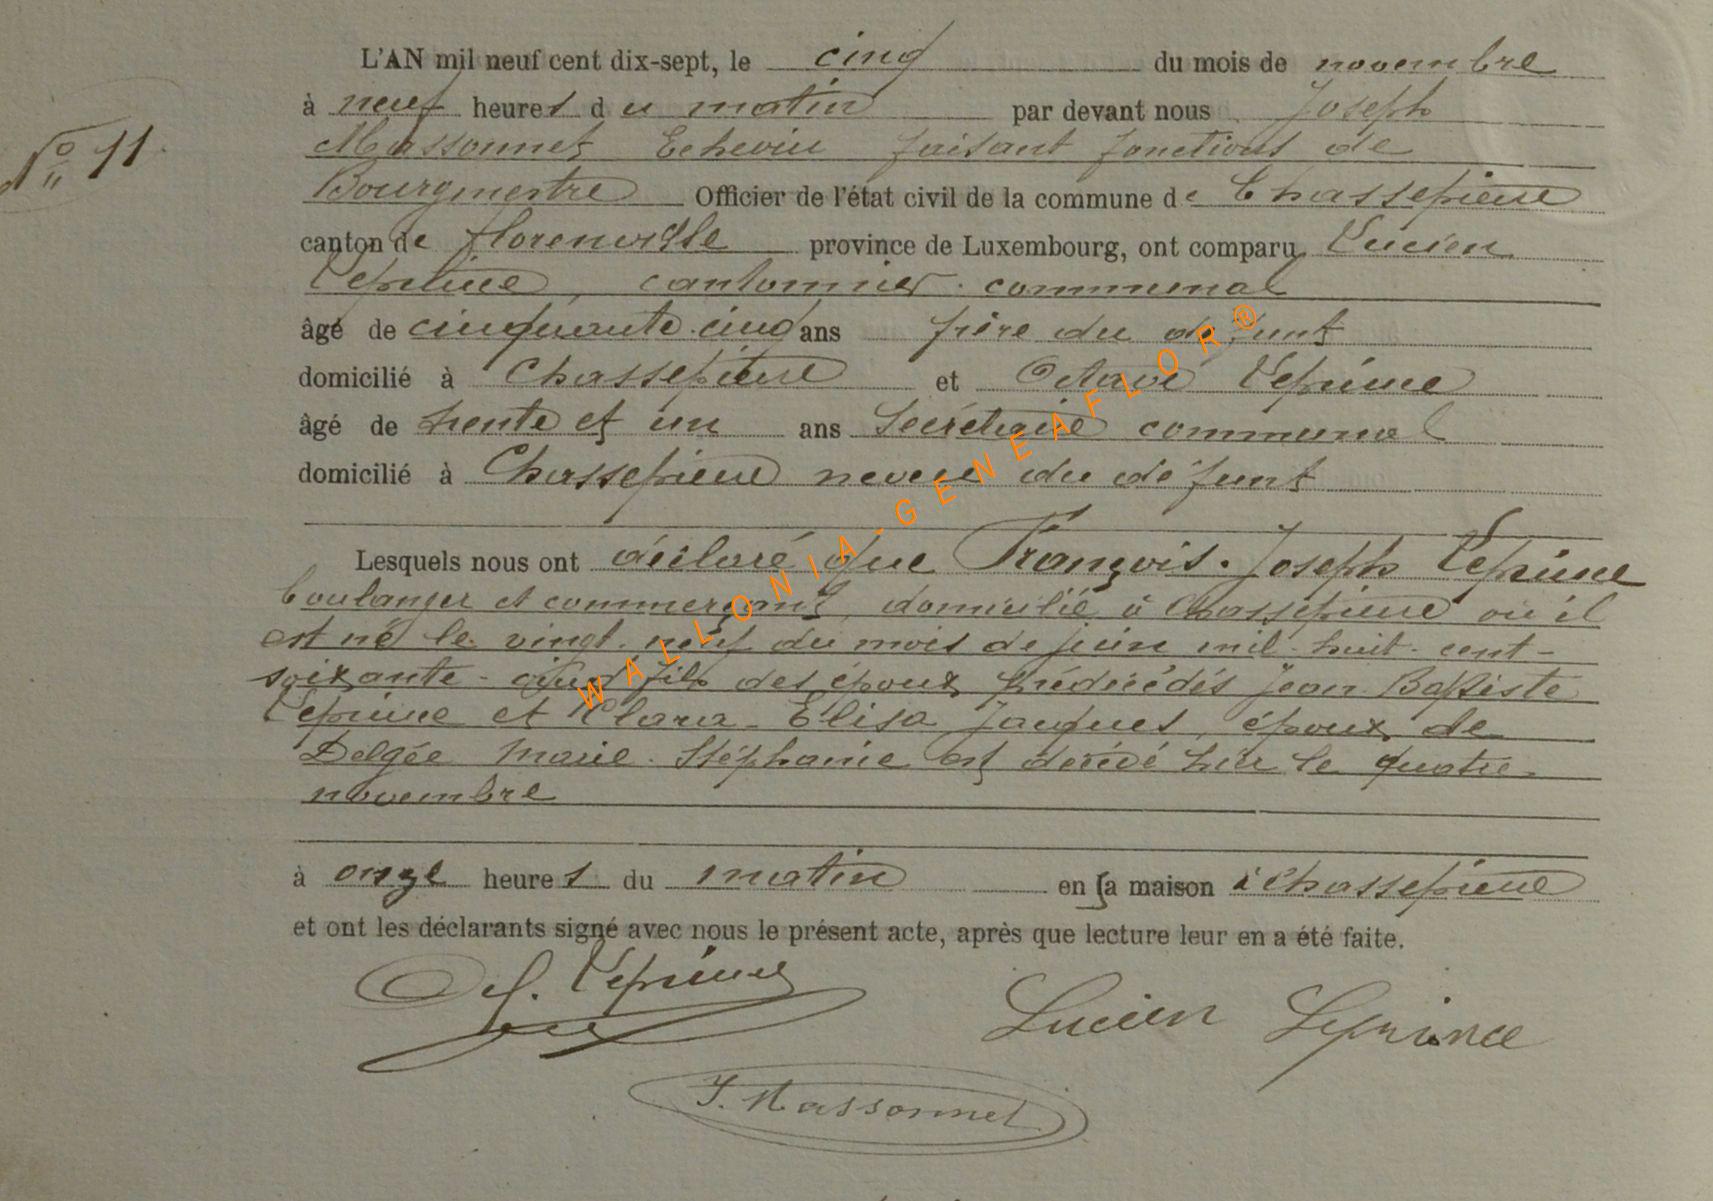 L'AN mil neuf cent dix-sept, le cinq du mois de novembre
à neuf heures du matin par devant nous Joseph
N° 11
Massonnet Echevin faisant fonctions de
Bourgmestre Officier de l'état civil de la commune de Chassepierre
canton de florenville province de Luxembourg, ont comparu Lucien
Leprince, cantonnier communal
âgé de cinquante-cinq ans frère du défunt
domicilié à Chassepierre et Octave Leprince
âgé de trente et un ans Secrétaire communal
domicilié à Chassepierre neveu du défunt
Lesquels nous ont déclaré que François-Joseph Leprince
boulanger et commerçant, domicilié à Chassepierre où il
est né le vingt-neuf du mois de juin mil-huit-cent-
soixante- fils des époux prédécédés Jean-Baptiste
Leprince et Clara-Elisa Jacques, époux de
Delgée Marie-Stéphanie est décédé hier le quatre
novembre
à onze heures du matin en sa maison à Chassepierre
et ont les déclarants signé avec nous le présent acte, après que lecture leur en a été faite.
Leprince Lucien Leprince
J. Massonnet
WALLONIA-GENEAFLOR®